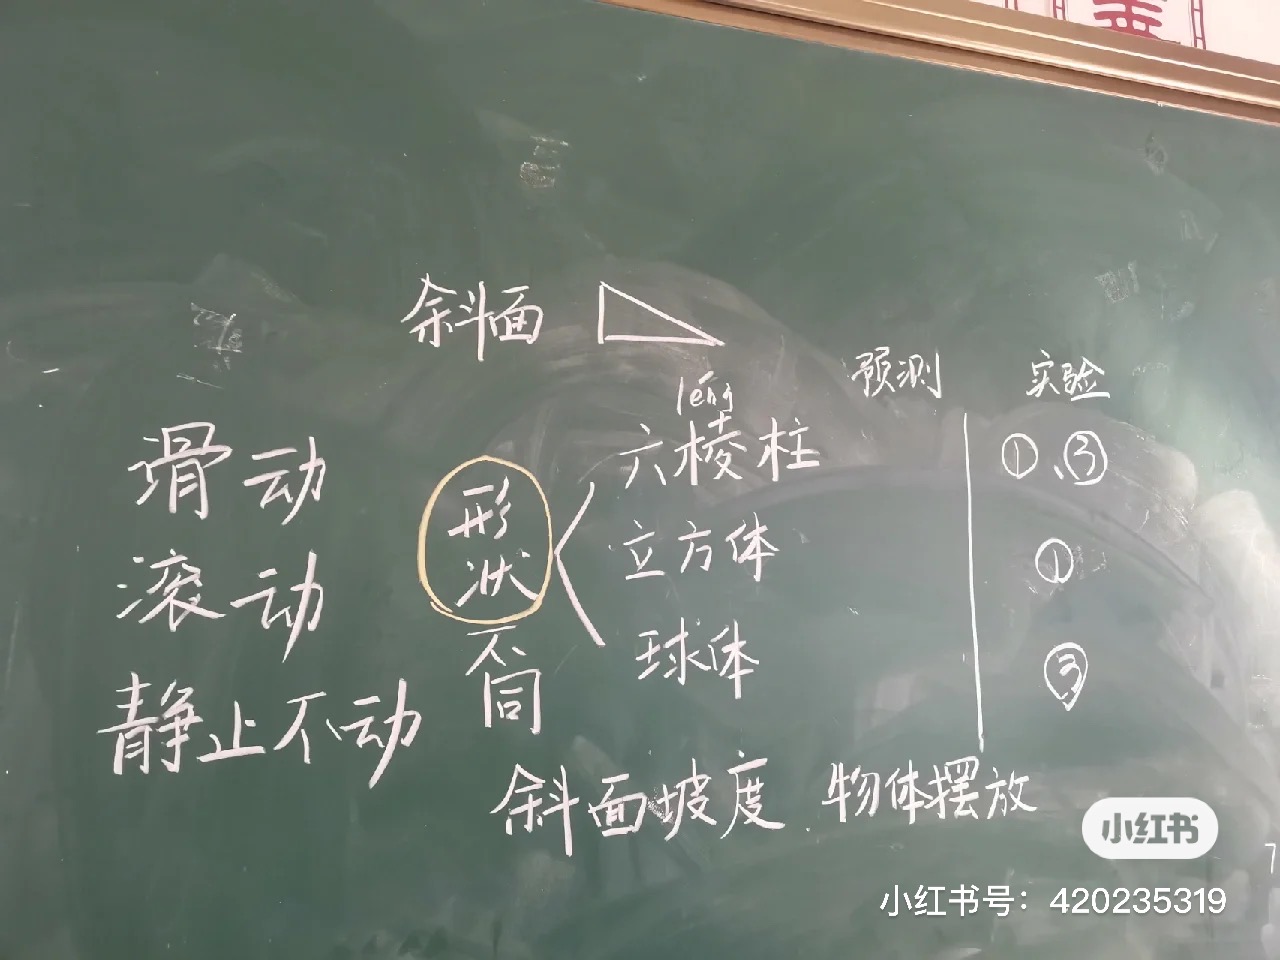 斜面
预测 实验
léng
滑动
滚动
静止不动
形状不同
六棱柱 ①、③
立方体 ①
球体 ③
斜面坡度 物体摆放
小红书
小红书号：420235319